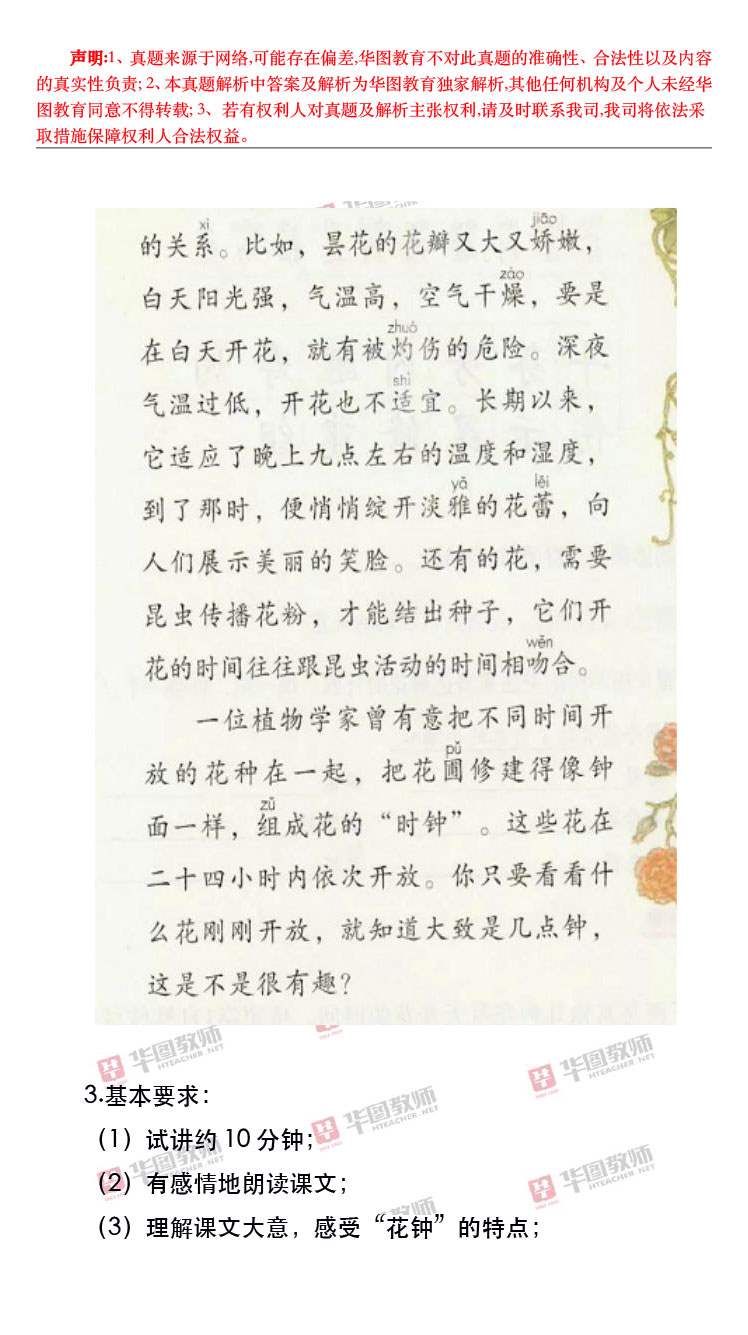 声明:1、真题来源于网络,可能存在偏差,华图教育不对此真题的准确性、合法性以及内容
的真实性负责; 2、本真题解析中答案及解析为华图教育独家解析,其他任何机构及个人未经华
图教育同意不得转载; 3、若有权利人对真题及解析主张权利,请及时联系我司,我司将依法采
取措施保障权利人合法权益。
xì jiāo
的关系。比如，昙花的花瓣又大又娇嫩，
zào
白天阳光强，气温高，空气干燥，要是
zhuó
在白天开花，就有被灼伤的危险。深夜
shì
气温过低，开花也不适宜。长期以来，
它适应了晚上九点左右的温度和湿度，
yǎ lěi
到了那时，便悄悄绽开淡雅的花蕾，向
人们展示美丽的笑脸。还有的花，需要
昆虫传播花粉，才能结出种子，它们开
wěn
花的时间往往跟昆虫活动的时间相吻合。
一位植物学家曾有意把不同时间开
pǔ
放的花种在一起，把花圃修建得像钟
zǔ
面一样，组成花的“时钟”。这些花在
二十四小时内依次开放。你只要看看什
么花刚刚开放，就知道大致是几点钟，
这是不是很有趣？
华图教师
HTEACHER.NET
华图教师
HTEACHER.NET
3.基本要求：
华图教师
HTEACHER.NET
（1）试讲约 10 分钟；
华图教师
HTEACHER.NET
华图教师
HTEACHER.NET
（2）有感情地朗读课文；
（3）理解课文大意，感受“花钟”的特点；